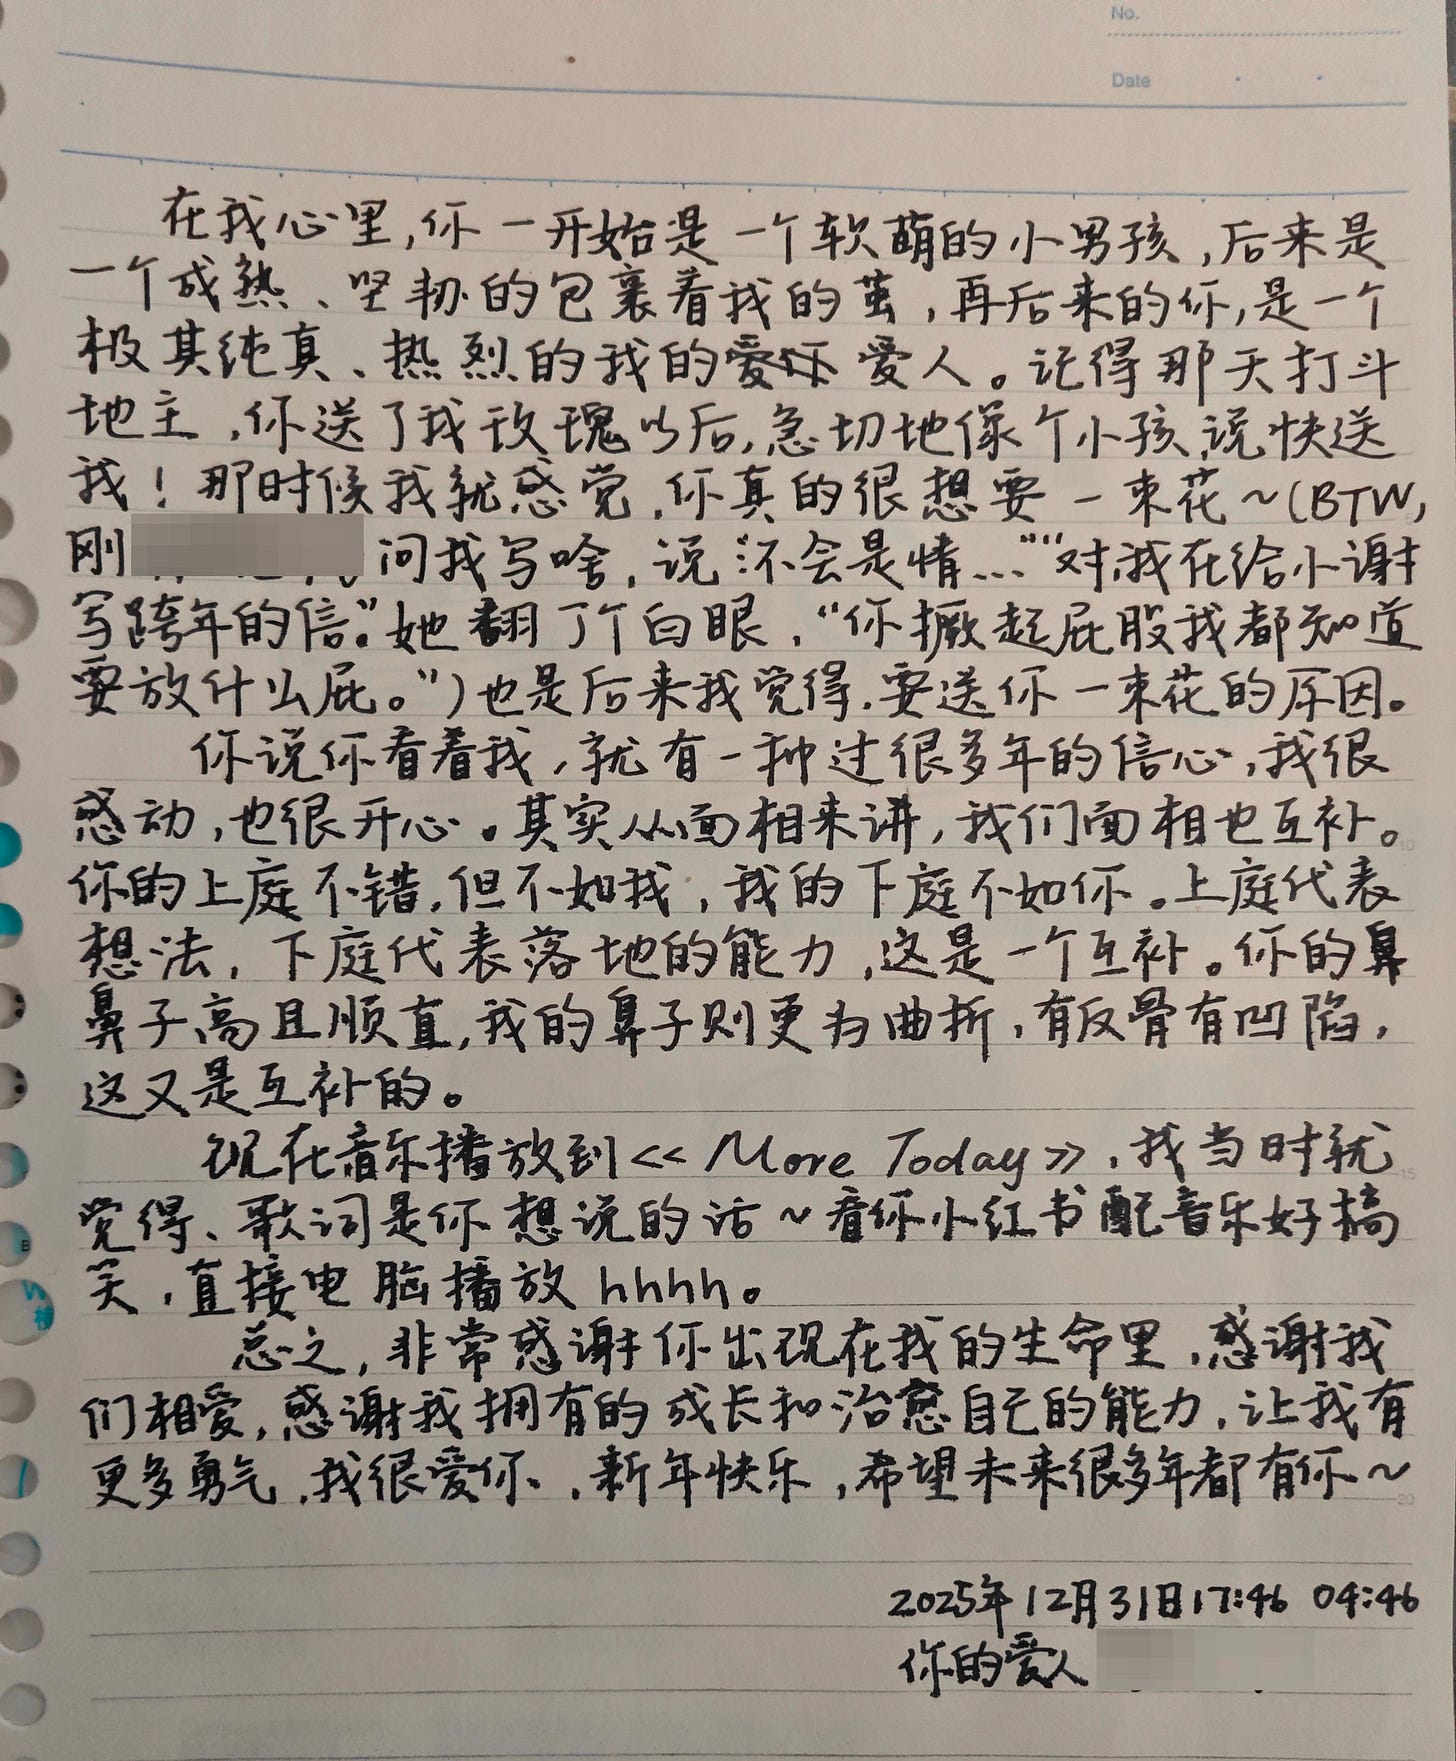 No.
Date
在我心里,你一开始是一个软萌的小男孩,后来是
一个成熟、坚韧的包裹着我的茧,再后来的你,是一个
极其纯真、热烈的我的爱人。记得那天打斗
地主,你送了我玫瑰以后,急切地像个小孩说快送
我!那时候我就感觉,你真的很想要一束花~(BTW,
刚 问我写啥,说“不会是情...”“对,我在给小谢
写跨年的信。”她翻了个白眼,“你撅起屁股我都知道
要放什么屁。”)也是后来我觉得,要送你一束花的原因。
你说你看着我,就有一种过很多年的信心,我很
感动,也很开心。其实从面相来讲,我们面相也互补。
你的上庭不错,但不如我,我的下庭不如你。上庭代表
想法,下庭代表落地的能力,这是一个互补。你的鼻
鼻子高且顺直,我的鼻子则更为曲折,有反骨有凹陷,
这又是互补的。
现在音乐播放到<< More Today >>,我当时就
觉得、歌词是你想说的话~看你小红书配音乐好搞
笑,直接电脑播放hhhh。
总之,非常感谢你出现在我的生命里,感谢我
们相爱,感谢我拥有的成长和治愈自己的能力,让我有
更多勇气,我很爱你、,新年快乐,希望未来很多年都有你~
2025年12月31日17:46 04:46
你的爱人